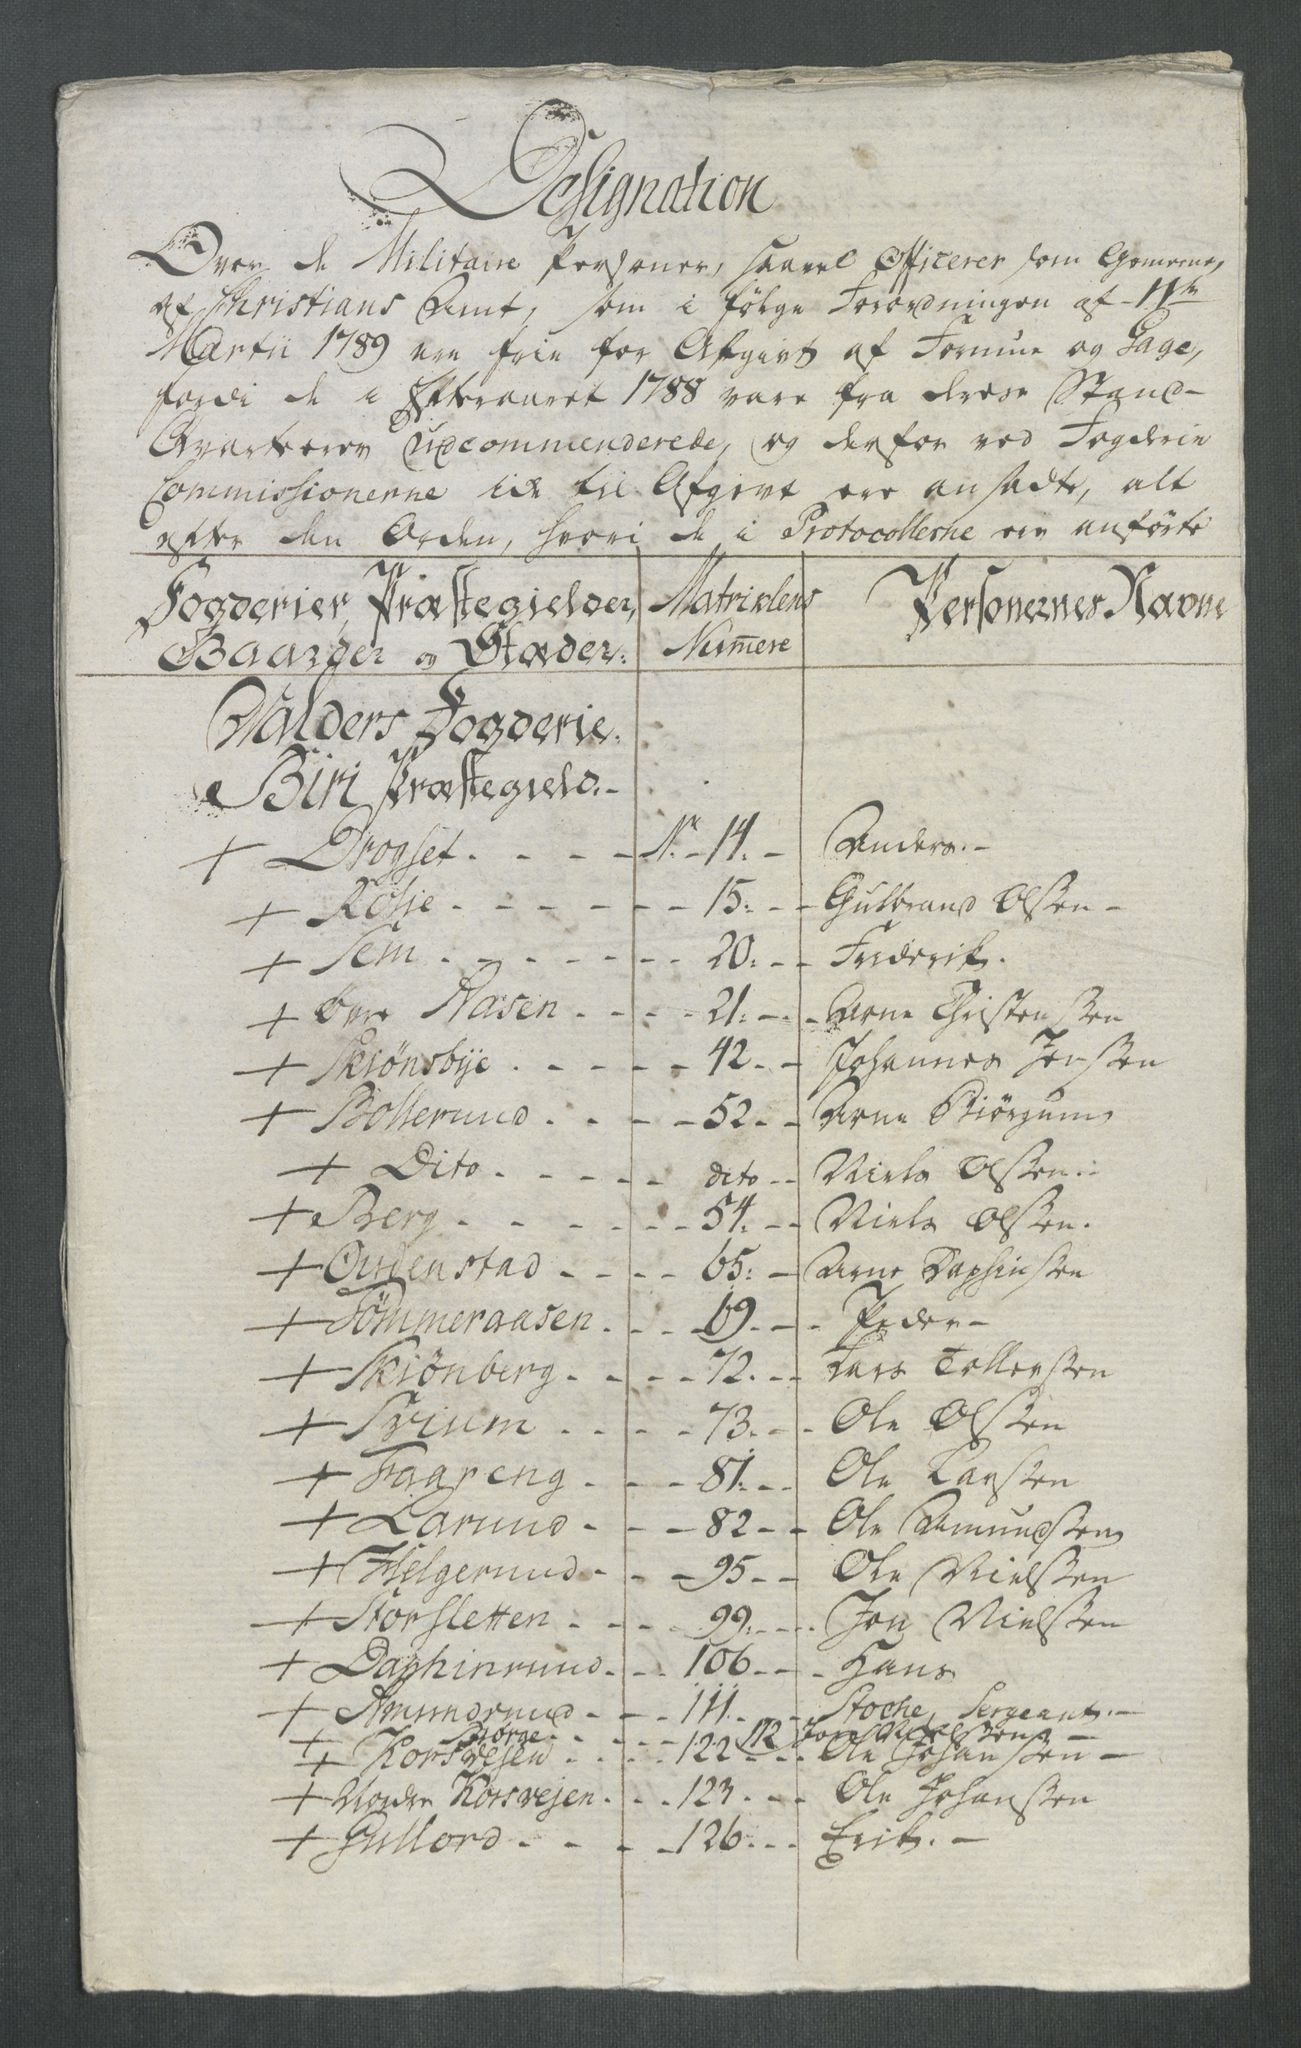 Designation
Over de Militaire Personer, saavel Officerer som Gemeene,
af Christians Amt, som i følge Forordningen af 11te
Martii 1789 ere frie for Afgivt af Formue og Gage,
fordi de i Efteraaret 1788 vare fra deres Stand-
Qvarterer udcommenderede, og derfor ved Fogderie
Commissionerne ikke til Afgivt ere ansadte, alt
efter den Orden, hvori de i Protocollerne ere anførte
Fogderier, Præstegielder, Matriklens Personernes Navne
Gaarder og Stæder: Numere
Valders Fogderie.
Biri Præstegield.-
+ Drogset. - - - - No. - 14. - Anders. -
+ Røsie - - - - - - 15. - - Gulbrand Olsen -
+ Sem - - - - - - 20. - - Friderik.
+ Øvre Aasen - - - - 21. - - Arne Christensen
+ Skiønsbye - - - - - 42. - Johannes Jensen
+ Bollerund - - - - 52 - - Arne Biørgum
+ Dito - - - - - dito - - Niels Olsen.
+ Berg - - - - - 54. - - Niels Olsen.
+ Oudenstad - - - - 65. - Arne Daphinsen
+ Sømmeraasen - - - 69 - - - Peder -
+ Skiønberg - - - - 72. - - Lars Tollersen
+ Svium - - - - 73. - - Ole Olsen
+ Faareng - - - 81. - - Ole Larsen
+ Larund - - - - 82 - - Ole Amundsen
+ Helgerund - - - 95 - - Ole Nielsen
+ Storsletten - - - - 99. - - - Jon Nielsen
+ Daphinrund - - - 106 - - - Hans
+ Amundrund - - - - 111. - - - Stoche, Sergeant. -
+ Biørge - - - - - - 112 Jon Nielsen -
+ Korsvejen - - - - 122 - - - Ole Johansen -
+ Nordre Korsvejen. - - 123 - - - Ole Johansen
+ Gullord - - - - - 126 - - - Erik. -